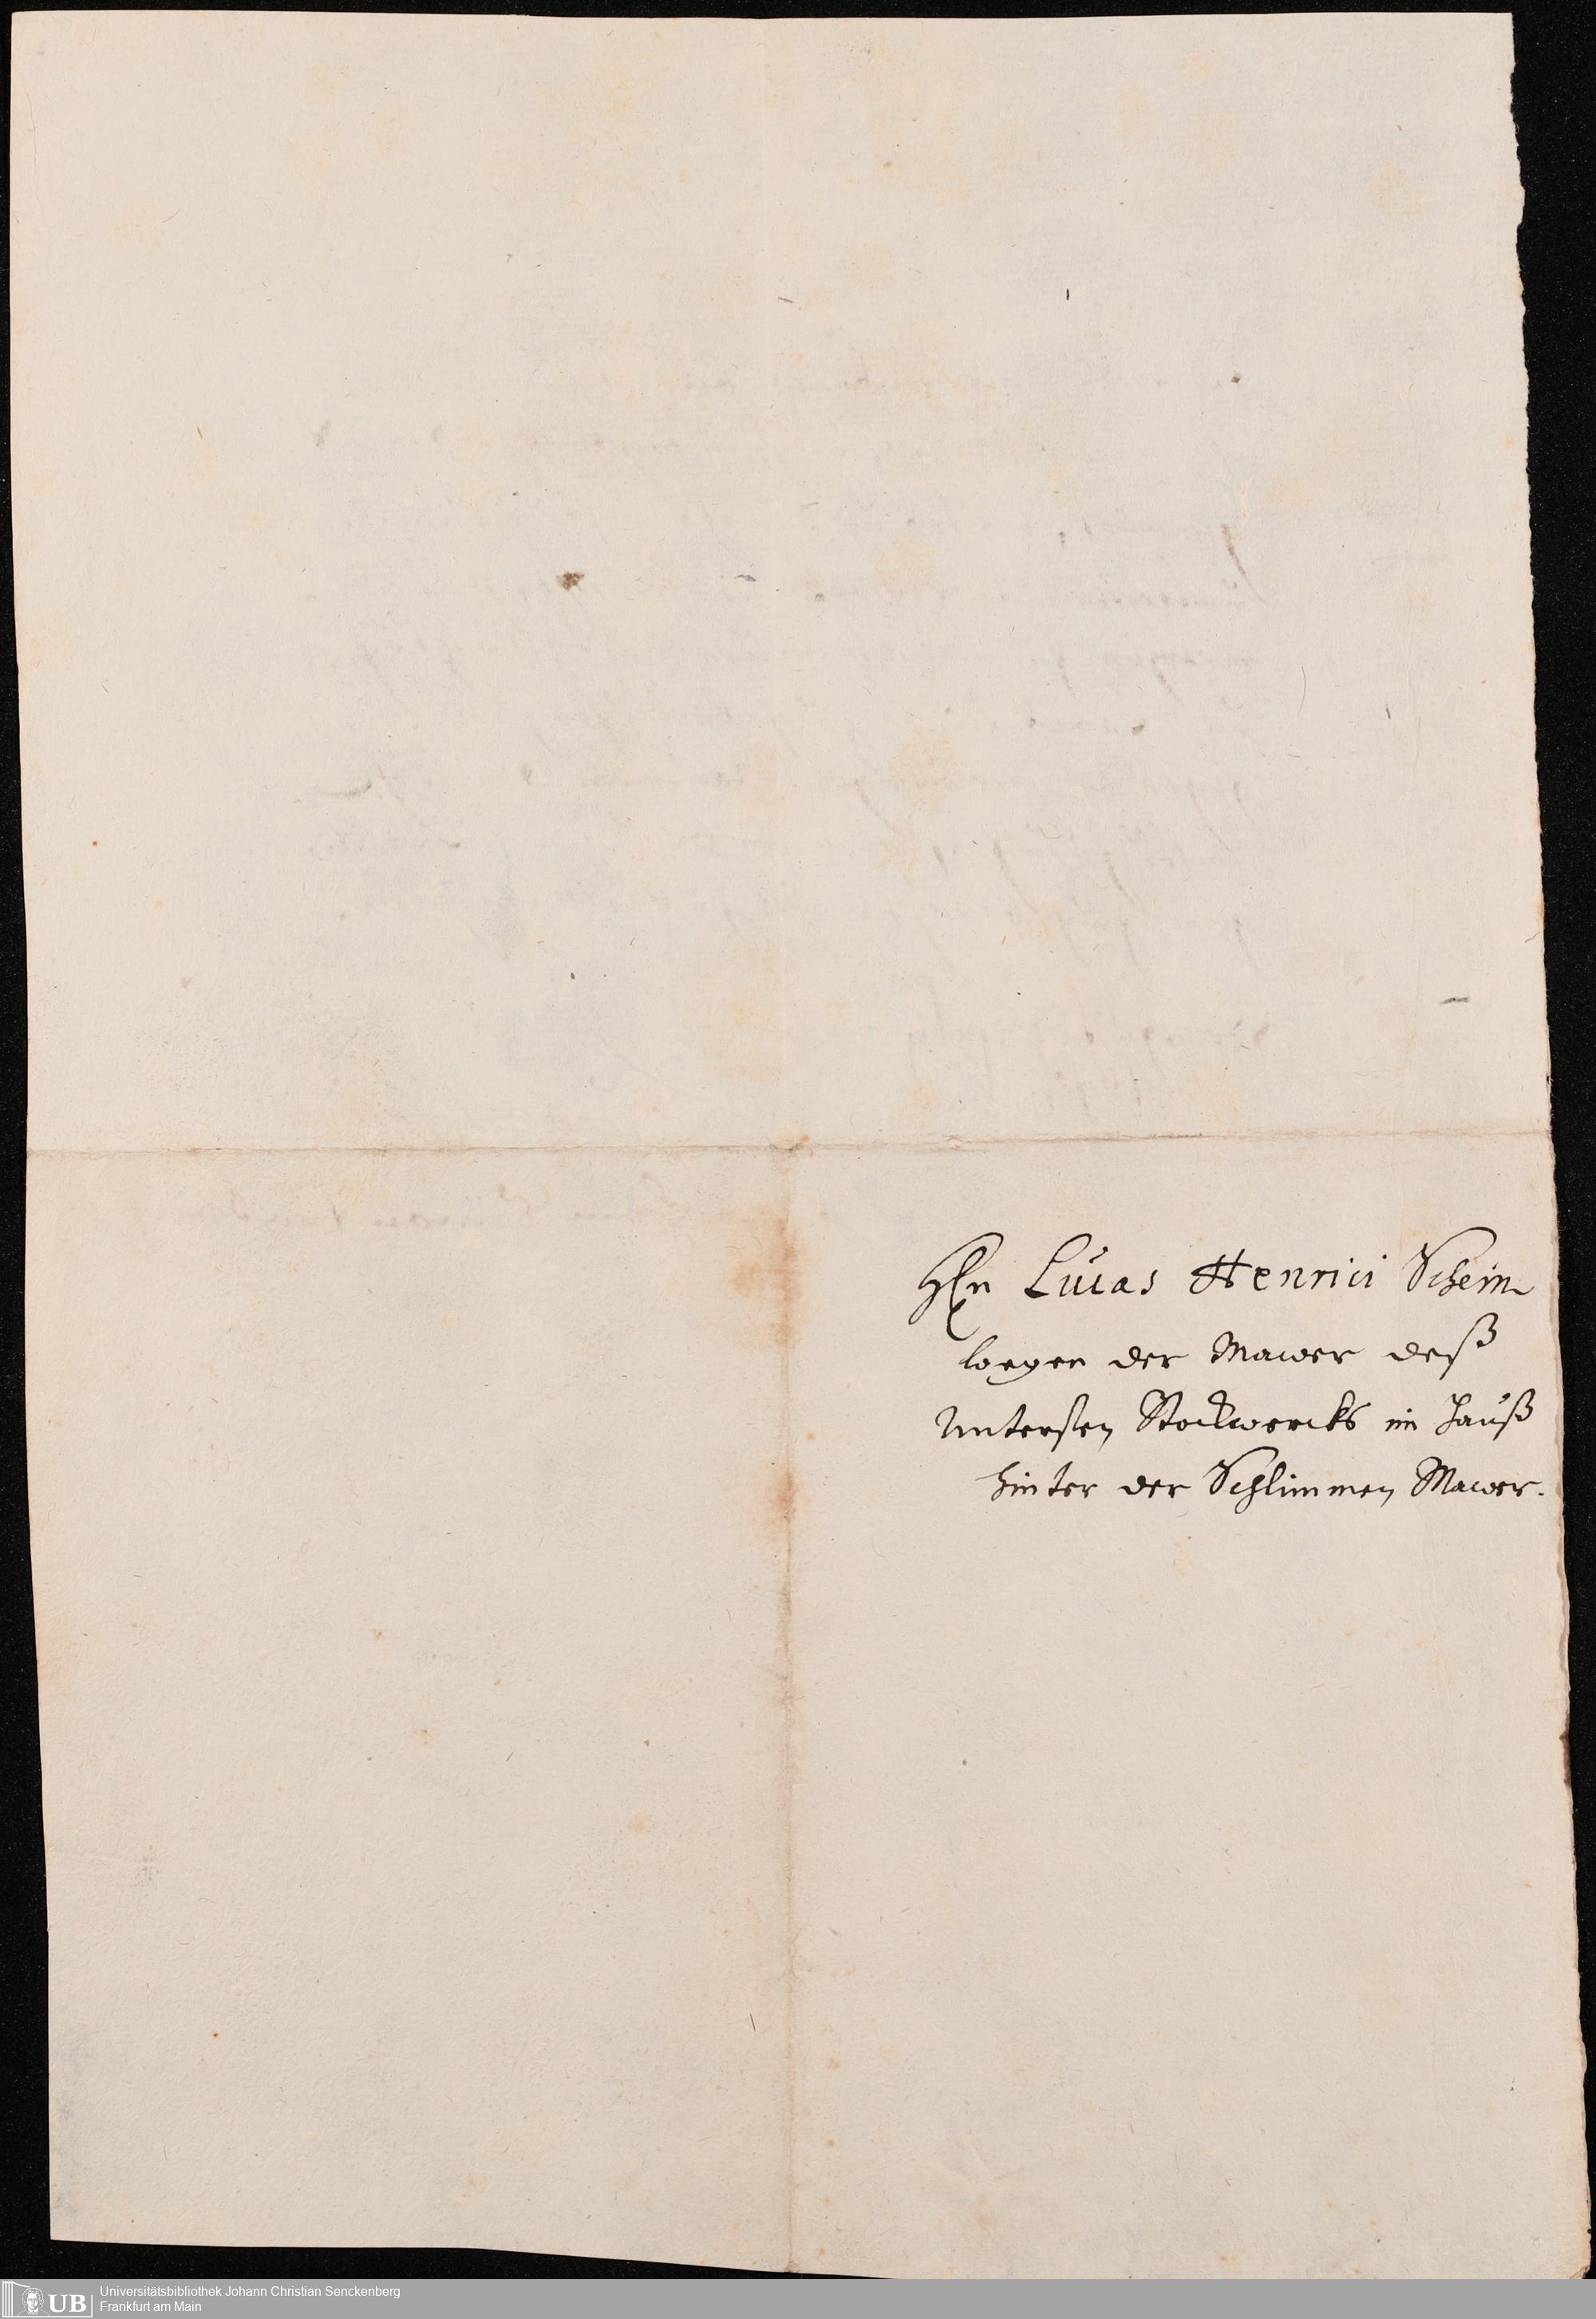 Hln Lucas Henrici Schein
wegen der Mawer deß
untersten Stockwercks im Hauß
hinter der Schlimmen Mawer.
UB
Universitätsbibliothek Johann Christian Senckenberg
Frankfurt am Main